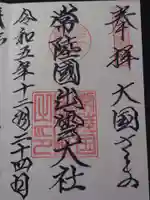 奉拝 大国さまの
常陸國出雲大社
令和五年十二月二十四日